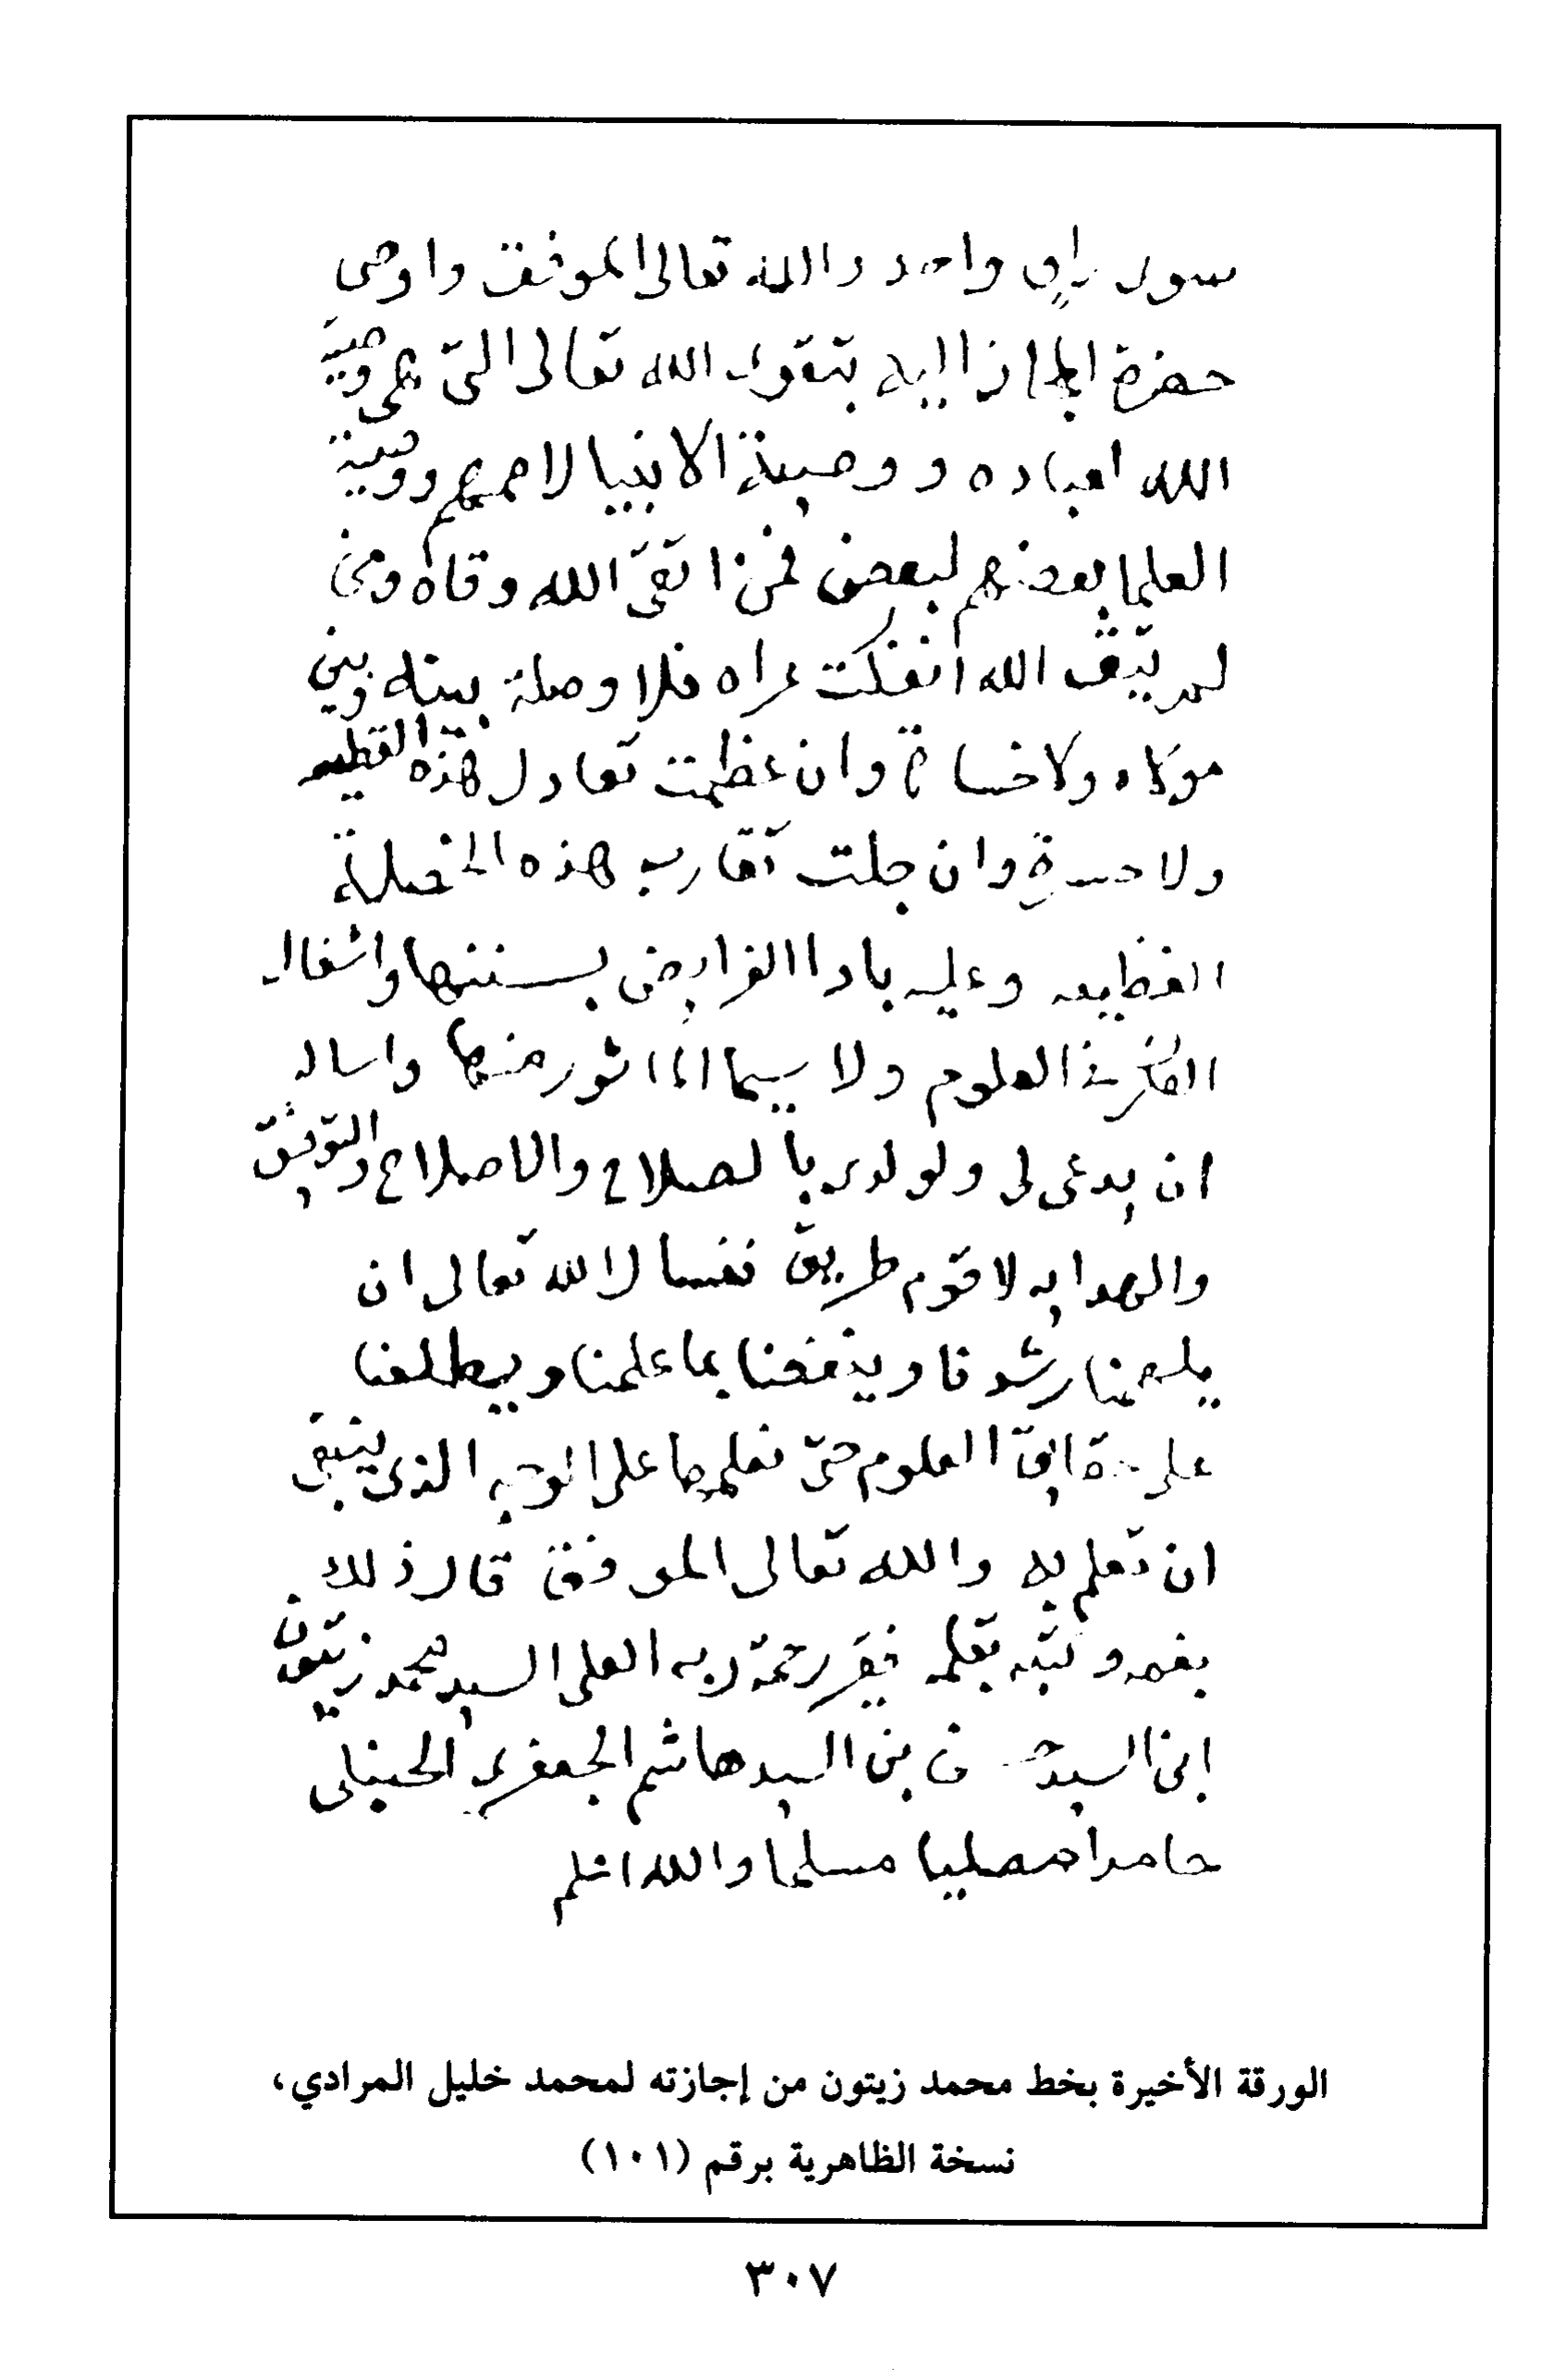 سوى راو واحد والله تعالى الموفق واوصي
حضرة المجاز اليه بتقوى الله تعالى التي هي وصية
الله لعباده ووصية الانبيا لاممهم ووصية
العلما بعضهم لبعض فمن اتقى الله وقاه ومن
لم يتق الله انفكت عراه فلا وصلة بينه وبين
مولاه ولا خسارة وان عظمت تعادل هذه القطيعة
ولا حسرة وان جلت تقارب هذه الخصلة
الفظيعه وعليه بادا الفرايض بسننها واشغال
الفكر في العلوم ولا سيما الماثور منها واساله
ان يدعي لي ولولدي بالصلاح والاصلاح والتوفيق
والهدايه لاقوم طريق نسال الله تعالى ان
يلهمنا رشدنا وينفعنا بما علمنا ويطلعنا
على حقايق العلوم حتى نعلمها على الوجه الذي ينبغي
ان تعلم به والله تعالى الموفق قال ذلك
بفمه وكتبه بقلمه فقير رحمة ربه العلي السيد محمد زيتون
ابن السيد حسن بن السيد هاشم الجعفري الحنبلي
حامدا مصليا مسلما والله اعلم
الورقة الأخيرة بخط محمد زيتون من إجازته لمحمد خليل المرادي،
نسخة الظاهرية برقم (١٠١)
٣٠٧